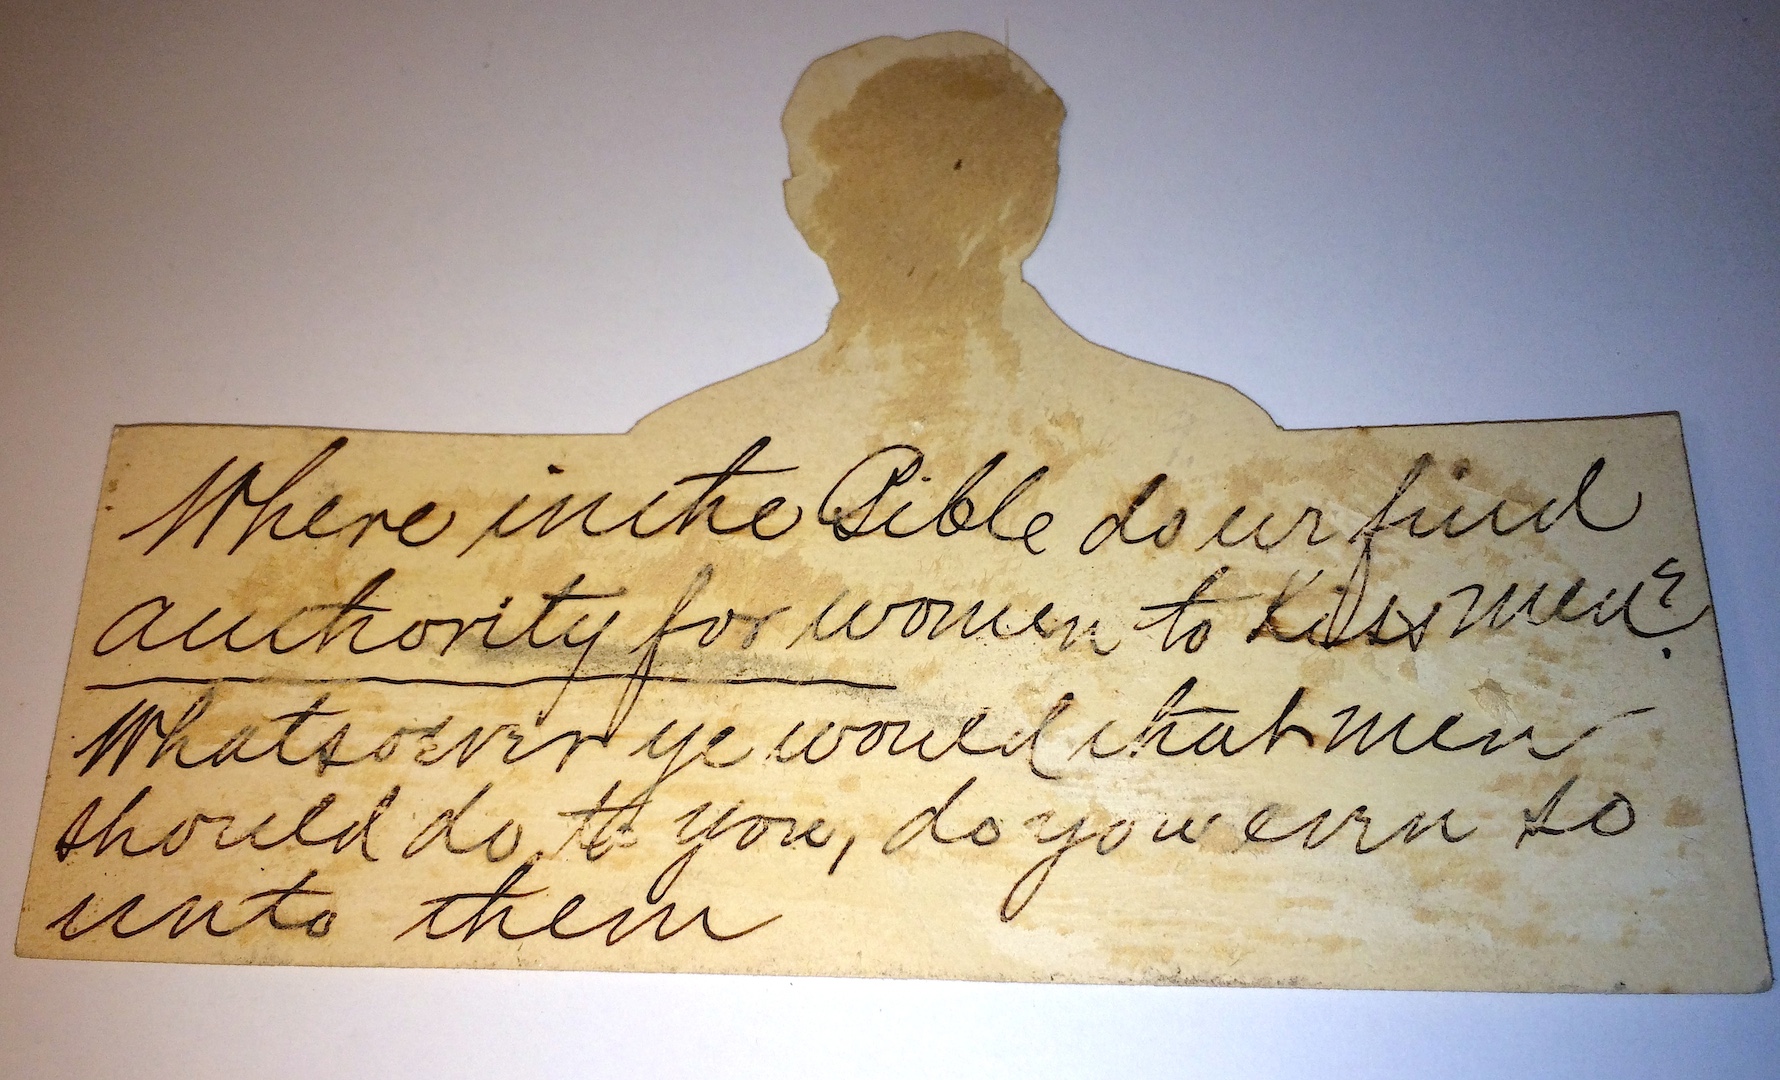 Where in the Bible do we find
authority for women to Kiss men?
Whatsoever ye would that men
should do to you, do you even so
unto them